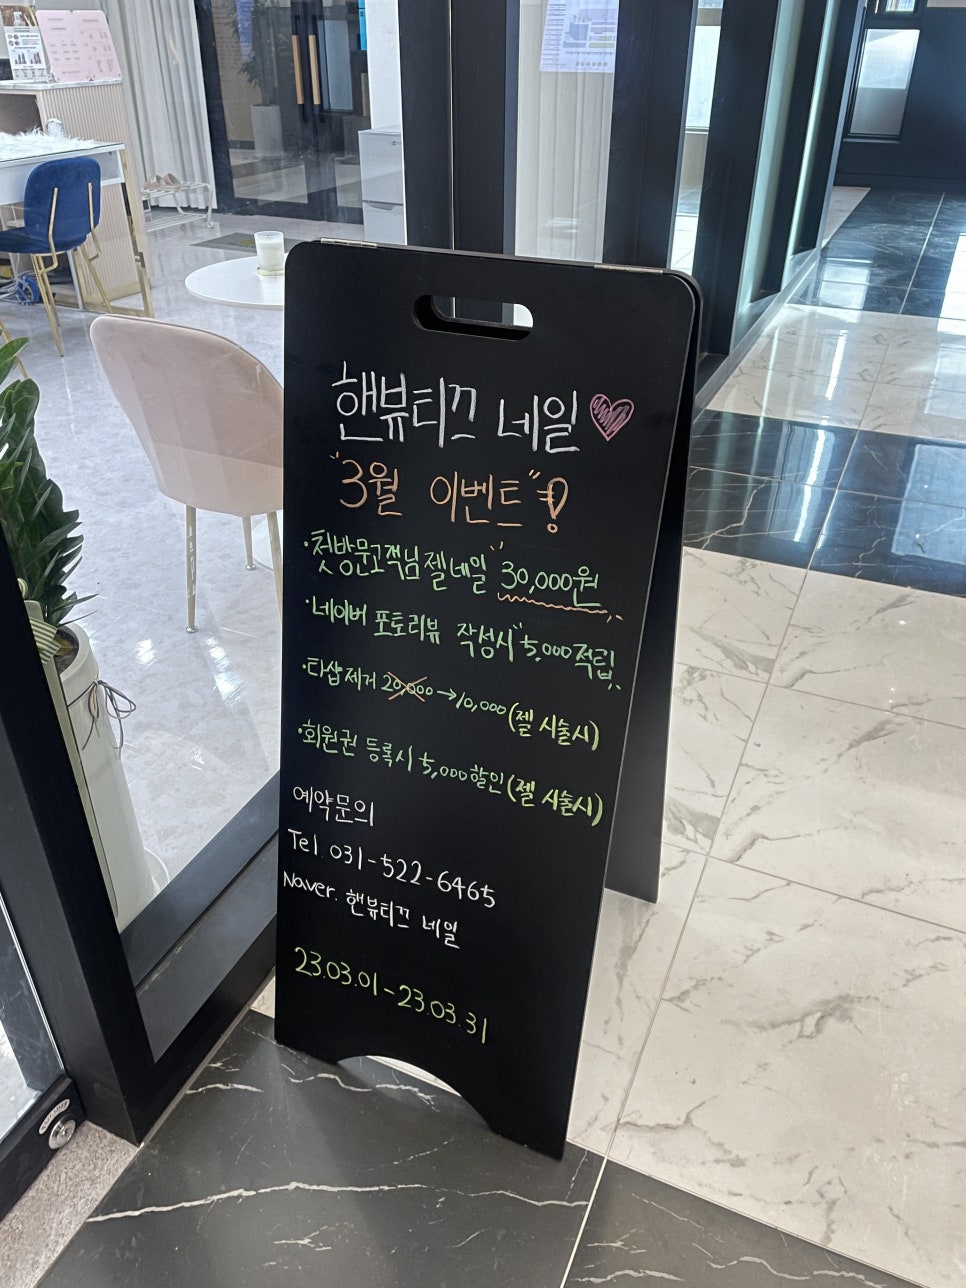 핸뷰티끄 네일
"3월 이벤트"!
·첫방문고객님 젤네일 "30,000원"
·네이버 포토리뷰 작성시 "5,000적립"
·타샵제거 20,000→10,000(젤 시술시)
·회원권 등록시 5,000할인(젤 시술시)
예약문의
Tel 031-522-6465
Naver. 핸뷰티끄 네일
23.03.01-23.03.31